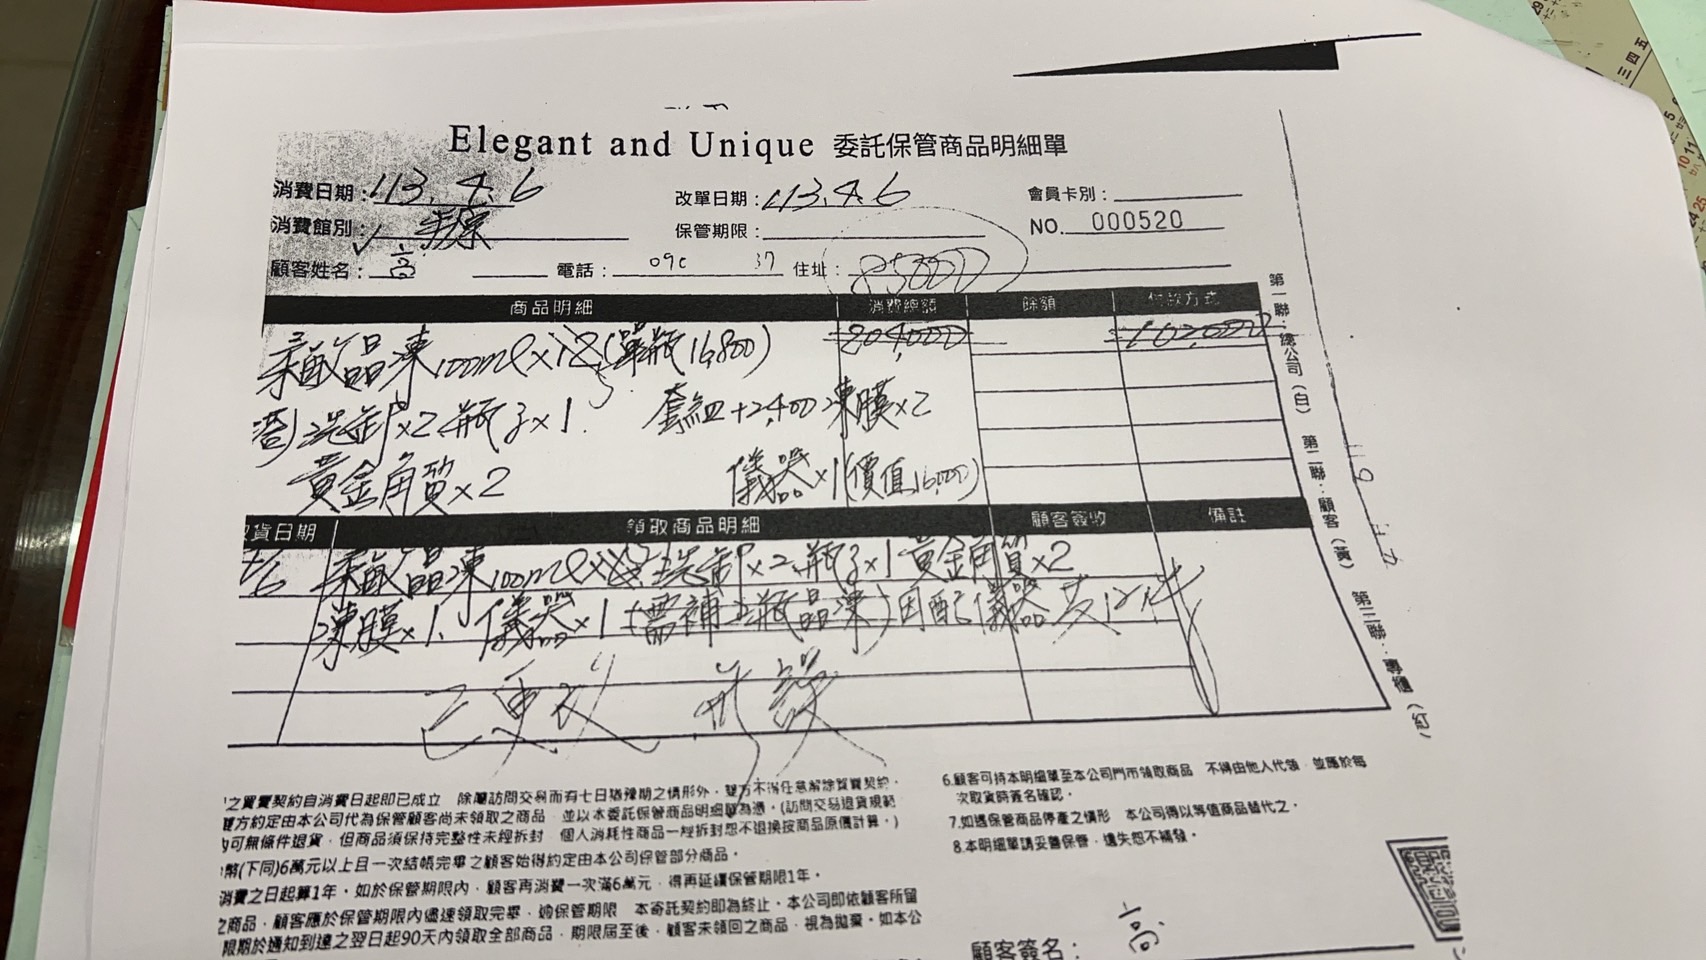 Elegant and Unique 委託保管商品明細單
消費日期：113.4.6 改單日期：113.4.6 會員卡別：
消費館別： 保管期限： NO. 000520
顧客姓名：高 電話：09 37 住址：85000
商品明細 消費總額 餘額 付款方式
晶凍100ml×12(單瓶16,800) 204,000 102,000
洗卸×2.瓶子×1 套組+2,400凍膜×2
黃金角質×2 儀器×1(價值16,000)
取貨日期 領取商品明細 顧客簽收 備註
4/6 晶凍100ml× 洗卸×2.瓶子×1黃金角質×2
凍膜×1、儀器×1(需補 瓶晶凍)因配儀器
第一聯：總公司（白） 第二聯：顧客（黃） 第三聯：專櫃（紅）
之買賣契約自消費日起即已成立 除屬訪問交易而有七日猶豫期之情形外，雙方不得任意解除買賣契約．
雙方約定由本公司代為保管顧客尚未領取之商品 並以本委託保管商品明細單為憑。(訪問交易退貨規範
可無條件退貨，但商品須保持完整性未經拆封 個人消耗性商品一經拆封恕不退換按商品原價計算。)
幣(下同)6萬元以上且一次結帳完畢之顧客始得約定由本公司保管部分商品。
消費之日起算1年。如於保管期限內，顧客再消費一次滿6萬元，得再延續保管期限1年。
之商品，顧客應於保管期限內儘速領取完畢，逾保管期限 本寄託契約即為終止。本公司即依顧客所留
限期於通知到達之翌日起90天內領取全部商品，期限屆至後，顧客未領回之商品，視為拋棄。如本公
6.顧客可持本明細單至本公司門市領取商品 不得由他人代領，並應於每
次取貨時簽名確認。
7.如遇保管商品停產之情形 本公司得以等值商品替代之。
8.本明細單請妥善保管，遺失恕不補發。
顧客簽名：高